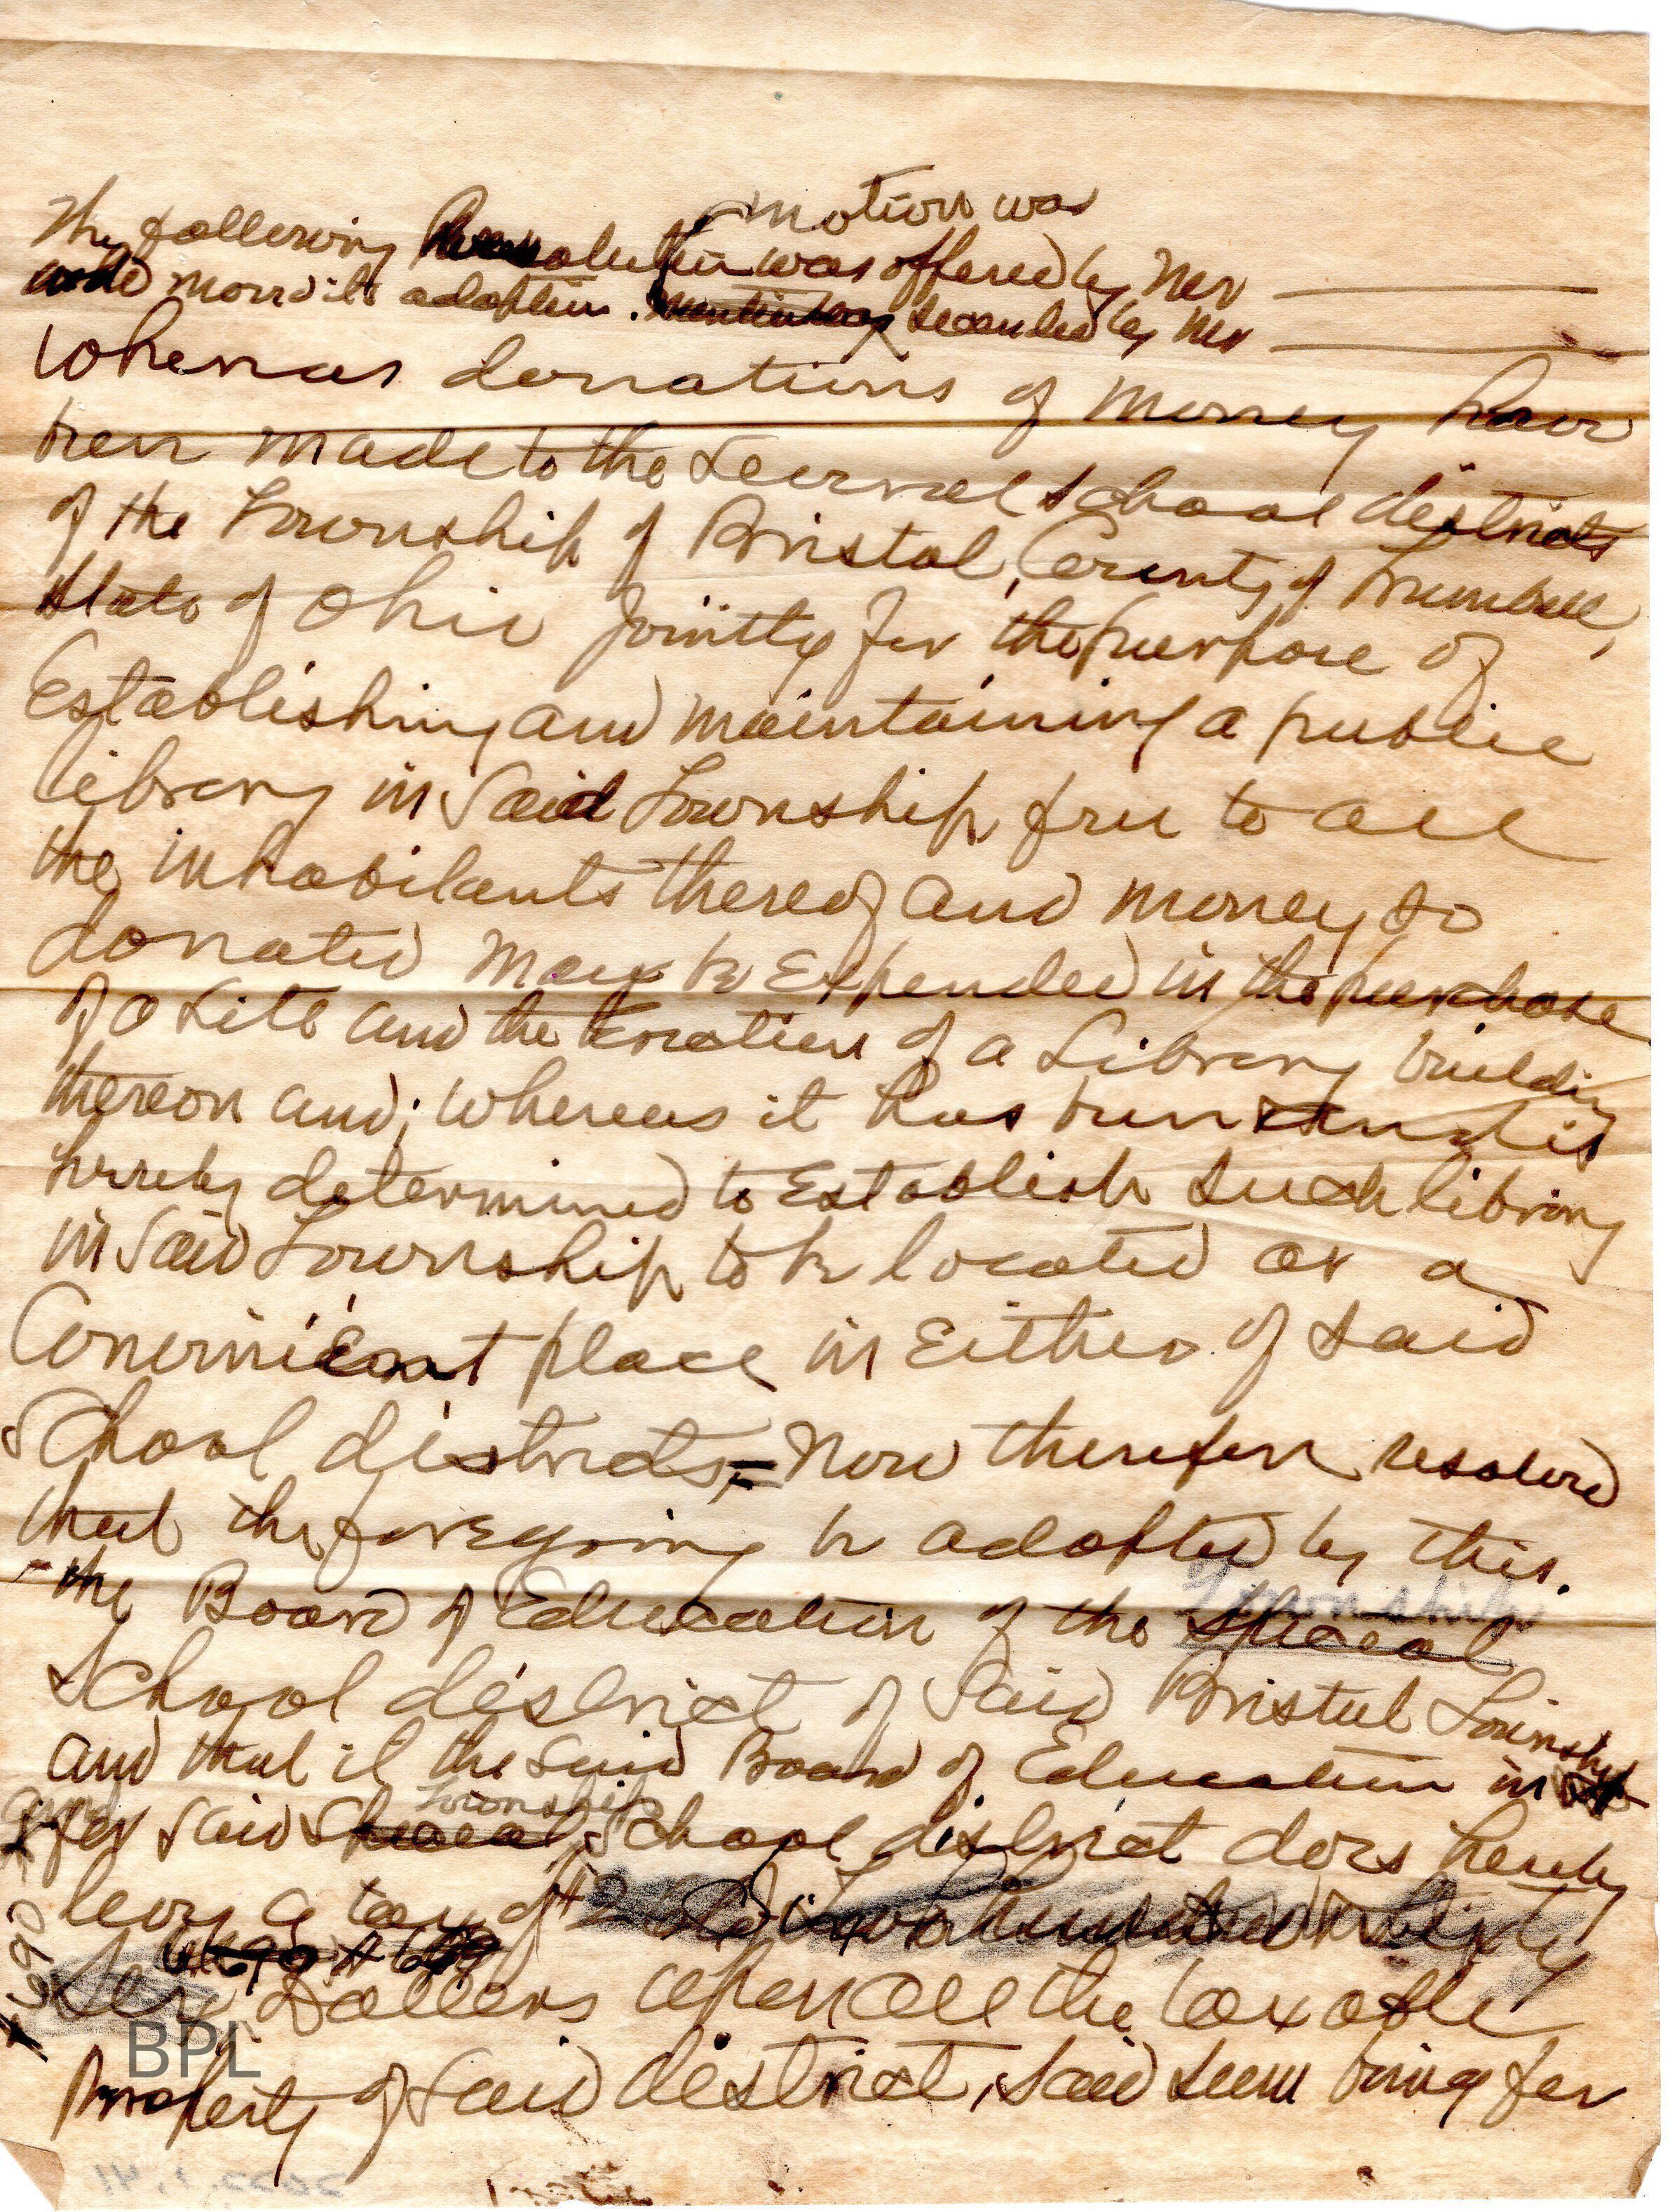 motion was
The following Resolution was offered by Mr
and moved its adoption. seconded by Mr
Whereas donations of money have
been made to the several school districts
of the Township of Bristol, County of Trumbull,
State of Ohio jointly for the purpose of
Establishing and maintaining a public
library in Said Township free to all
the inhabitants thereof and money so
donated may be Expended in the purchase
of a site and the Erection of a Library building
thereon and; whereas it has been and is
hereby determined to Establish such library
in Said Township to be located at a
Convenient place in Either of said
School districts, = Now therefore resolved
that the foregoing be adopted by this.
Township
the Board of Education of the Special
School district of Said Bristol Township
and that it the said Board of Education in
Township
and for Said Special School district does hereby
levy a tax of
Dollars upon all the taxable
$690
BPL
Property of Said district, said sum being for
2022.1.41